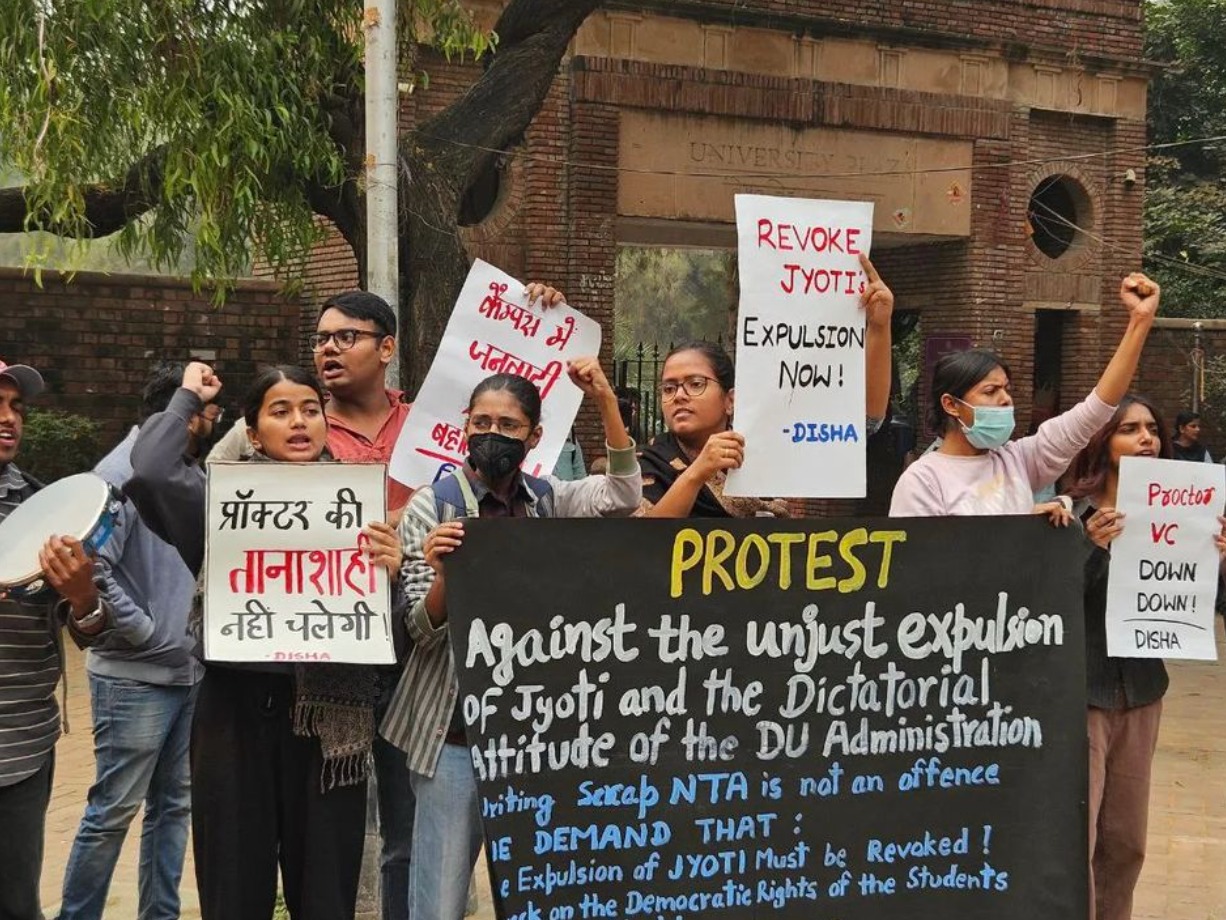 UNIVERSITY
REVOKE
JYOTI's
EXPULSION
NOW!
-DISHA
कैम्पस में
जनवादी
प्रॉक्टर की
तानाशाही
नही चलेगी!
-DISHA
Proctor
VC
DOWN
DOWN!
DISHA
PROTEST
Against the unjust expulsion
OF Jyoti and the Dictatorial
Attitude of the DU Administration
riting Scrap NTA is not an offence
E DEMAND THAT :
e Expulsion of JYOTI Must be Revoked !
on the Democratic Rights of the Students